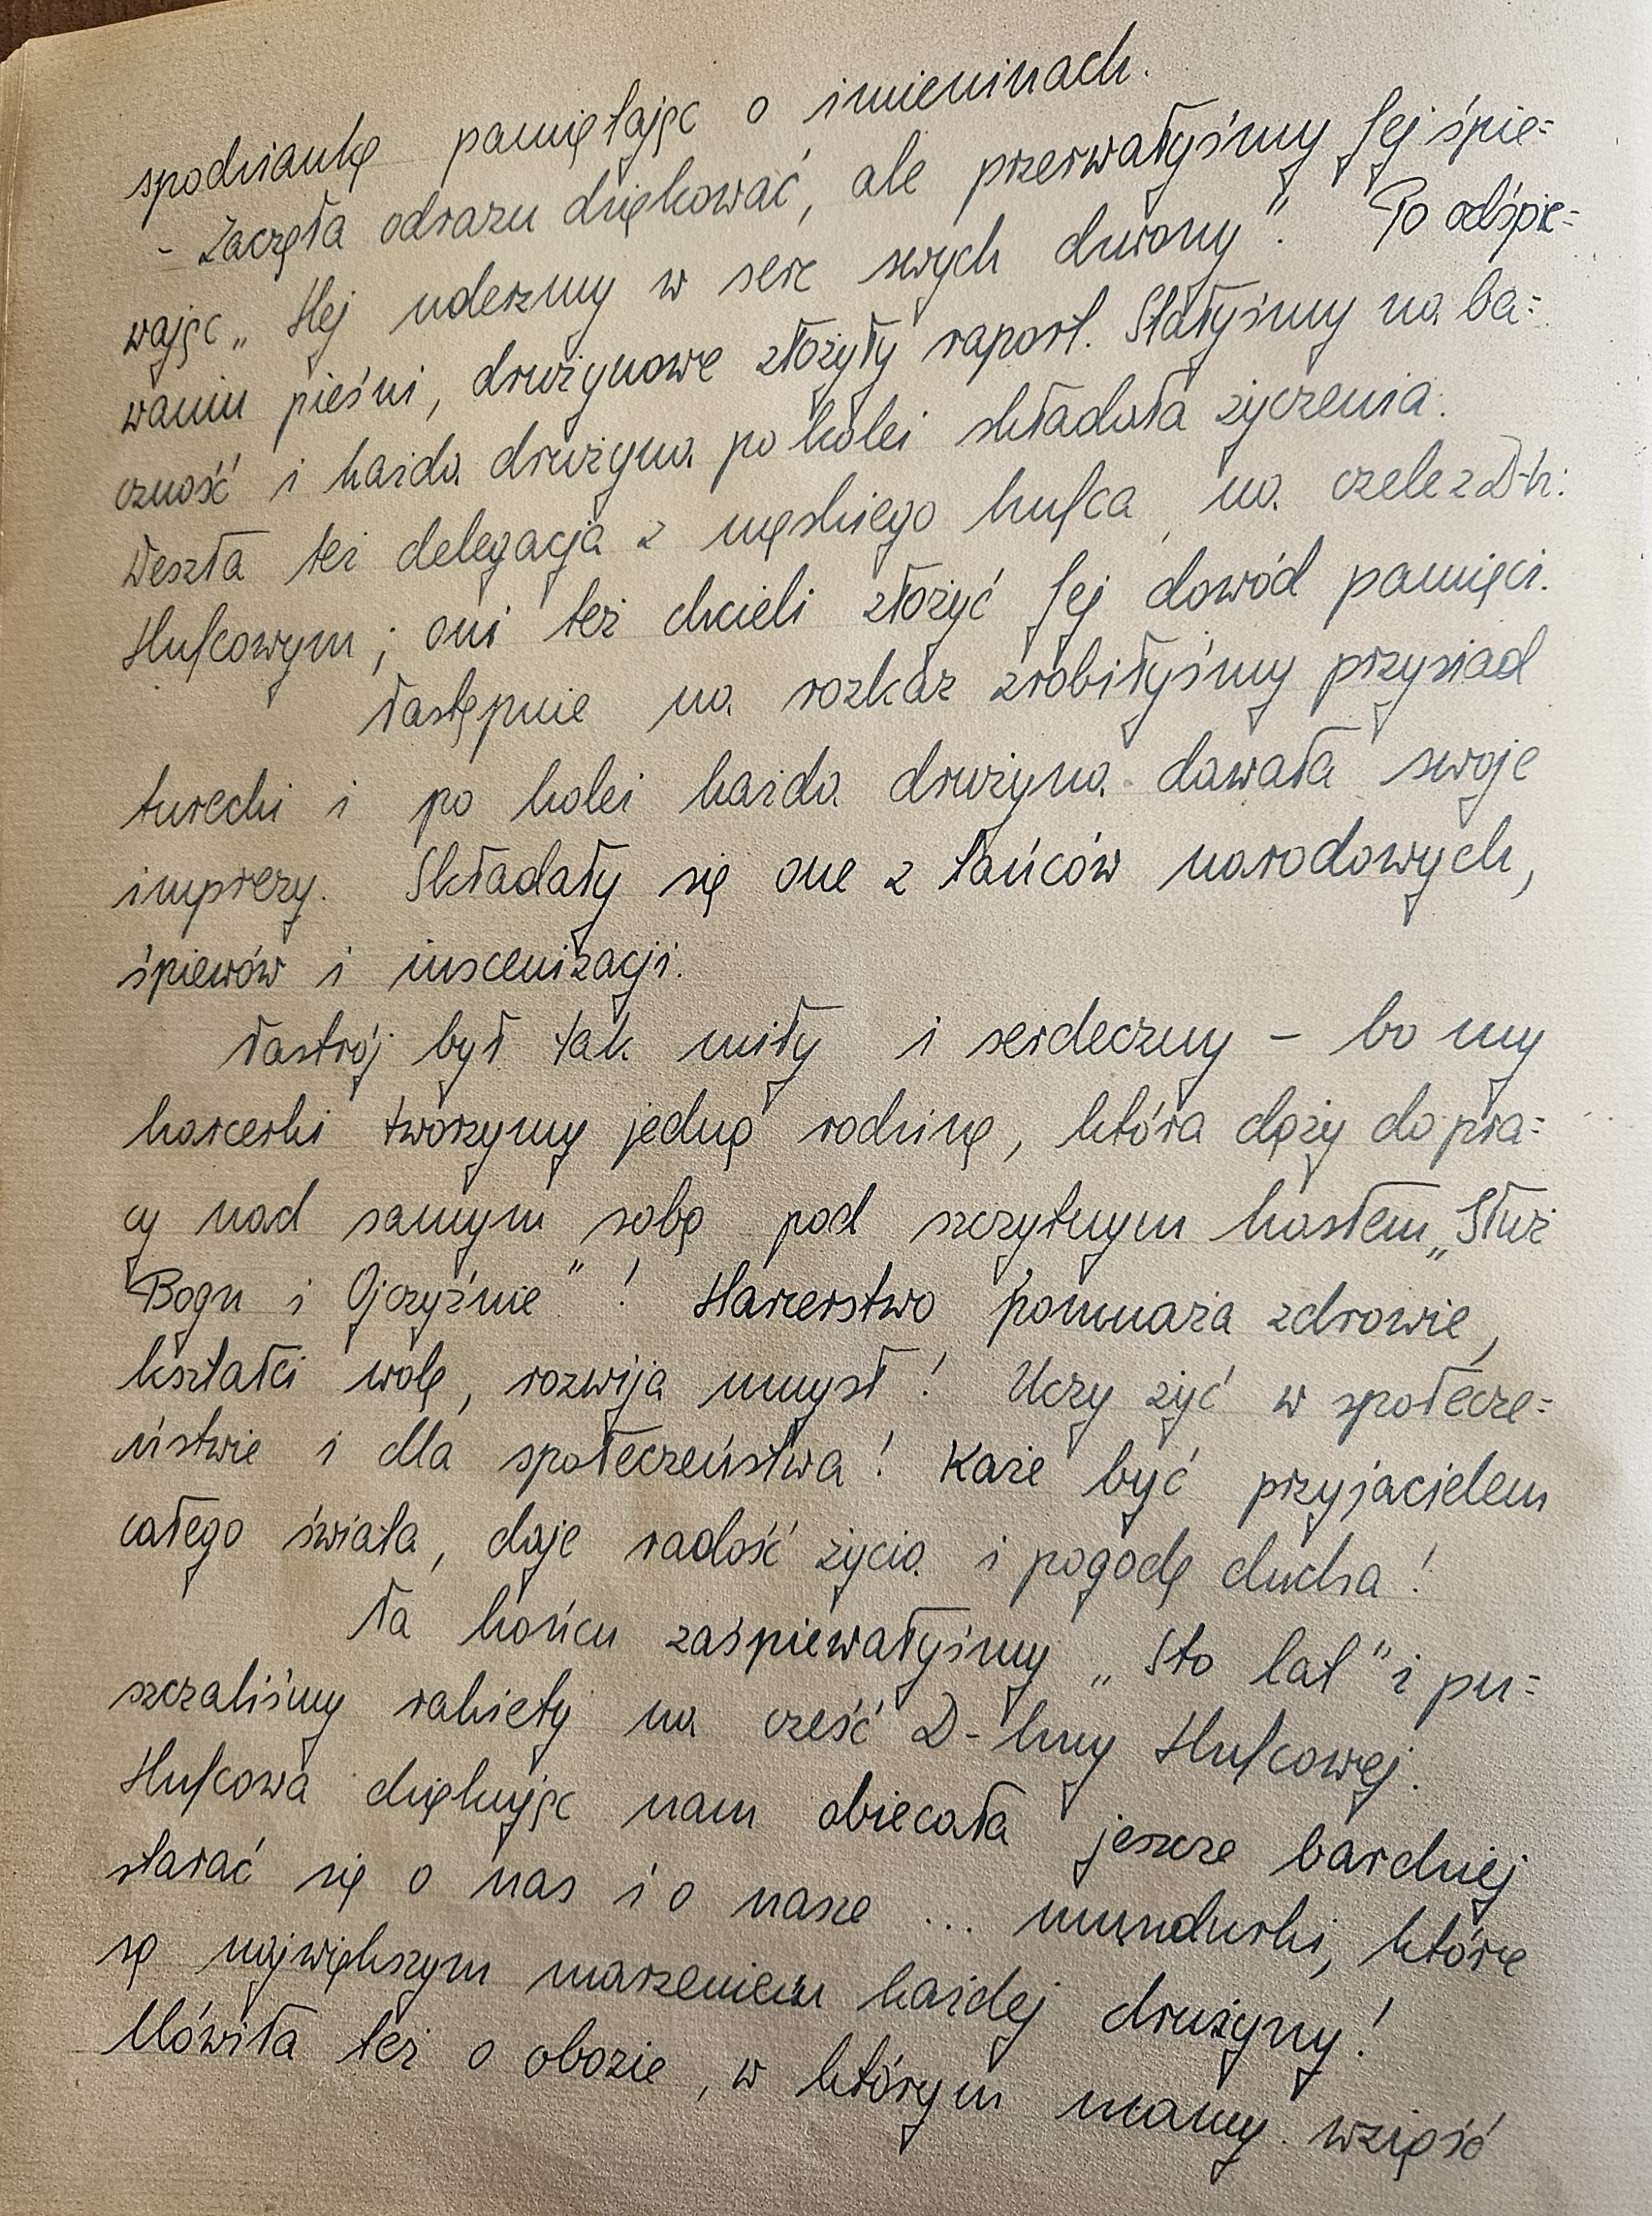 spodziankę pamiętając o imieninach.
- Zaczęła odrazu dziękować, ale przerwałyśmy Jej śpie=
wając „Hej uderzmy w serc swych dzwony". Po odśpie=
waniu pieśni, drużynowe złożyły raport. Stałyśmy na ba=
czność i każda drużyna po kolei składała życzenia.
Weszła też delegacja z męskiego hufca, na czele z D-h:
Hufcowym; oni też chcieli złożyć Jej dowód pamięci.
Następnie na rozkaz zrobiłyśmy przysiad
turecki i po kolei każda drużyna dawała swoje
imprezy. Składały się one z tańców narodowych,
śpiewów i inscenizacji.
Nastrój był tak miły i serdeczny – bo my
harcerki tworzymy jedną rodzinę, która dąży do pra=
cy nad samym sobą pod szczytnym hasłem „Służ
Bogu i Ojczyźnie"! Harcerstwo pomnaża zdrowie,
kształci wolę, rozwija umysł! Uczy żyć w społecze=
ństwie i dla społeczeństwa! Każe być przyjacielem
całego świata, daje radość życia i pogodę ducha!
Na końcu zaśpiewałyśmy „Sto lat" i pu=
szczaliśmy rakiety na cześć D-hny Hufcowej.
Hufcowa dziękując nam obiecała jeszcze bardziej
starać się o nas i o nasze ... mundurki, które
są największym marzeniem każdej drużyny!
Mówiła też o obozie, w którym mamy wziąść